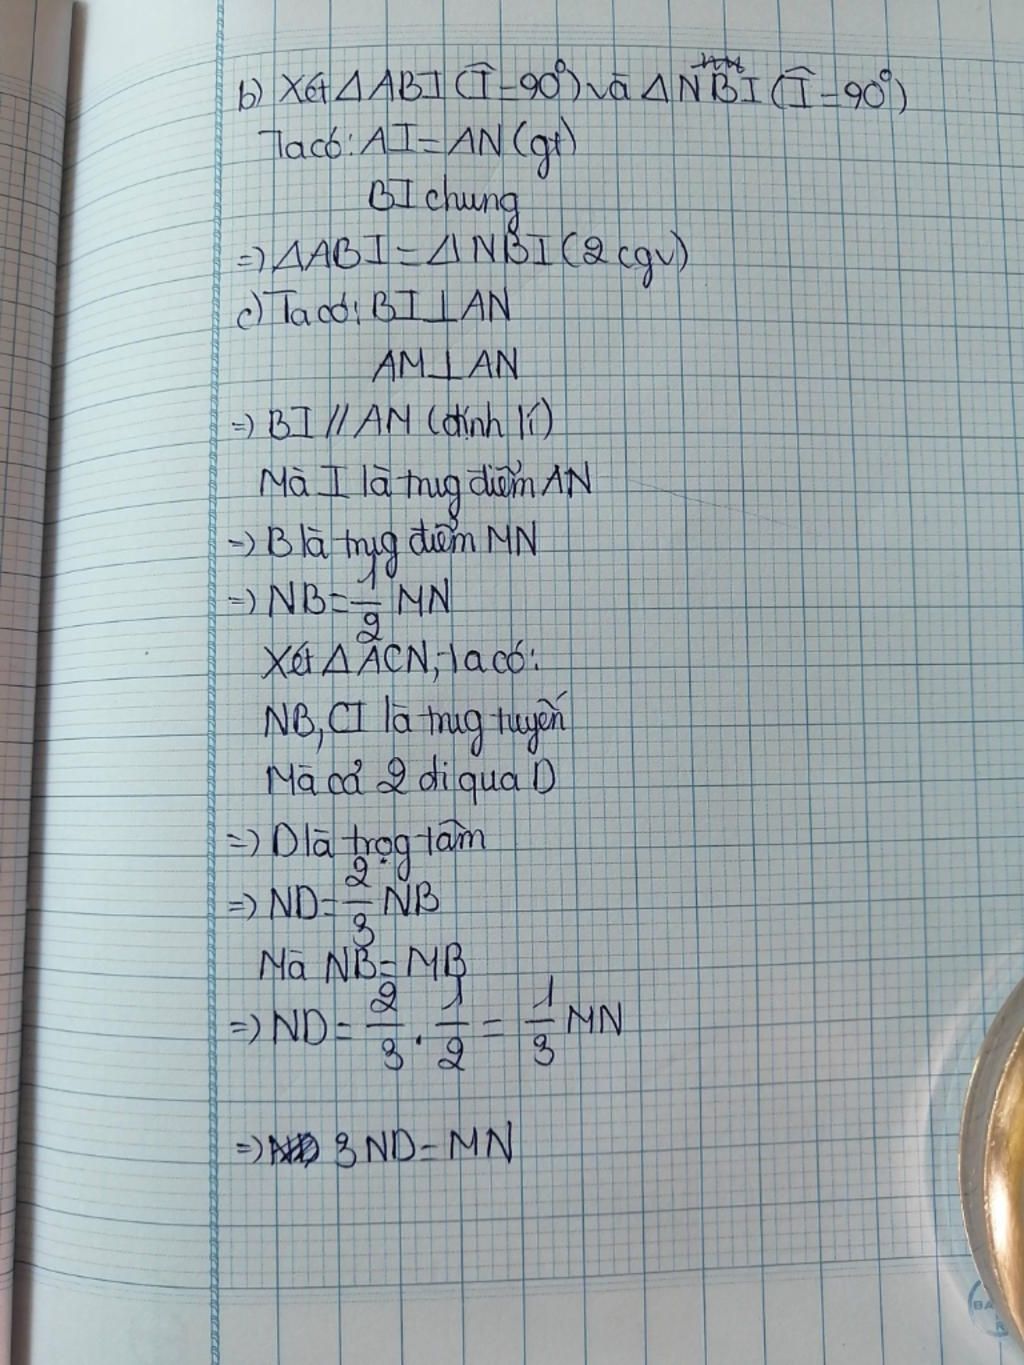 b) Xét ΔABI (Î = 90°) và ΔNBI (Î = 90°)
Ta có: AI = AN (gt)
BI chung
=) ΔABI = ΔNBI (2 cgv)
c) Ta có: BI ⊥ AN
AM ⊥ AN
=) BI // AM (định lí)
Mà I là trug điểm AN
=) B là trug điểm MN
=) NB = 1/2 MN
Xét ΔACN, ta có:
NB, CI là trug tuyến
Mà cả 2 đi qua D
=) D là trọg tâm
=) ND = 2/3 NB
Mà NB = MB
=) ND = 2/3 . 1/2 = 1/3 MN
=) 3ND = MN
BA
R